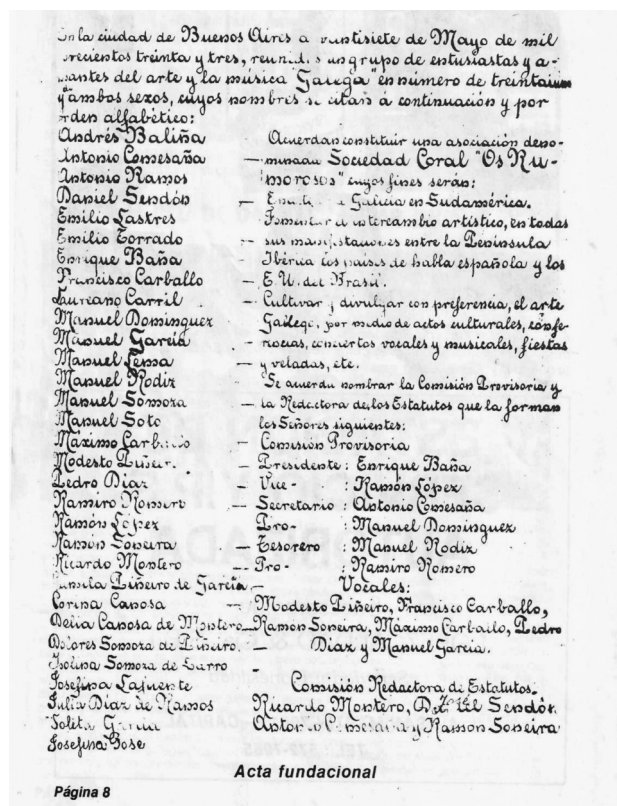 En la ciudad de Buenos Aires a veintisiete de Mayo de mil
novecientos treinta y tres, reunidos un grupo de entusiastas y a-
mantes del arte y la música "Galega" en número de treintaiuno
y ambos sexos, cuyos nombres se citan á continuación y por
orden alfabético:
Andrés Baliña
Antonio Comesaña
Antonio Ramos
Daniel Sendón
Emilio Lastres
Emilio Torrado
Enrique Baña
Francisco Carballo
Laureano Carril
Manuel Dominguez
Manuel García
Manuel Lema
Manuel Rodiz
Manuel Somoza
Manuel Soto
Máximo Carballo
Modesto Piñeiro
Pedro Diaz
Ramiro Romero
Ramón López
Ramón Soneira
Ricardo Montero
Piñeiro de García
Corina Canosa
Delia Canosa de Montero
Dolores Somoza de Piñeiro
Isolina Somoza de Larro
Josefina Lafuente
Julia Diaz de Ramos
Soleta García
Josefina Gose
Acuerdan constituir una asociación deno-
minada Sociedad Coral "Os Ru-
morosos" cuyos fines serán:
Galicia en Sudamérica.
Fomentar el intercambio artístico, en todas
sus manifestaciones entre la Península
Ibérica los países de habla española y los
E.U. del Brasil.
Cultivar y divulgar con preferencia, el arte
Gallego, por medio de actos culturales, confe-
rencias, conciertos vocales y musicales, fiestas
y veladas, etc.
Se acuerda nombrar la Comisión Provisoria y
la Redactora de los Estatutos que la forman
los Señores siguientes:
Comisión Provisoria
Presidente: Enrique Baña
Vice- : Ramón López
Secretario: Antonio Comesaña
Pro- : Manuel Dominguez
Tesorero : Manuel Rodiz
Pro- : Ramiro Romero
Vocales:
Modesto Piñeiro, Francisco Carballo,
Ramón Soneira, Máximo Carballo, Pedro
Diaz y Manuel García.
Comisión Redactora de Estatutos.
Ricardo Montero, Daniel Sendón
Antonio Comesaña y Ramon Soneira
Acta fundacional
Página 8